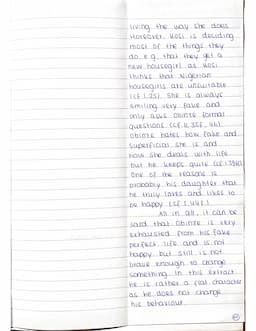 living the way she does
Moreover, Kosi is deciding
most of the things they
do, e.g. that they get a
new housegirl as Kosi
thinks that Nigerian
housegirls are unsuitable
(cf. l. 25). She is always
smiling very fake and
only asks Obinze formal
questions (cf. ll. 35f.,
Obinze hates how fake and
superficial she is and
how she deals with life
but he keeps quite
One of the reasons is
probably his daughter that
he truly loves and likes to
be happy (cf. l. 44f.).
All in all, it can be
said that Obinze is very
exhausted from his fake
perfect life and is not
happy but still is not
brave enough to change
something. In this extract
he is rather a flat character
as he does not change
his behaviour.